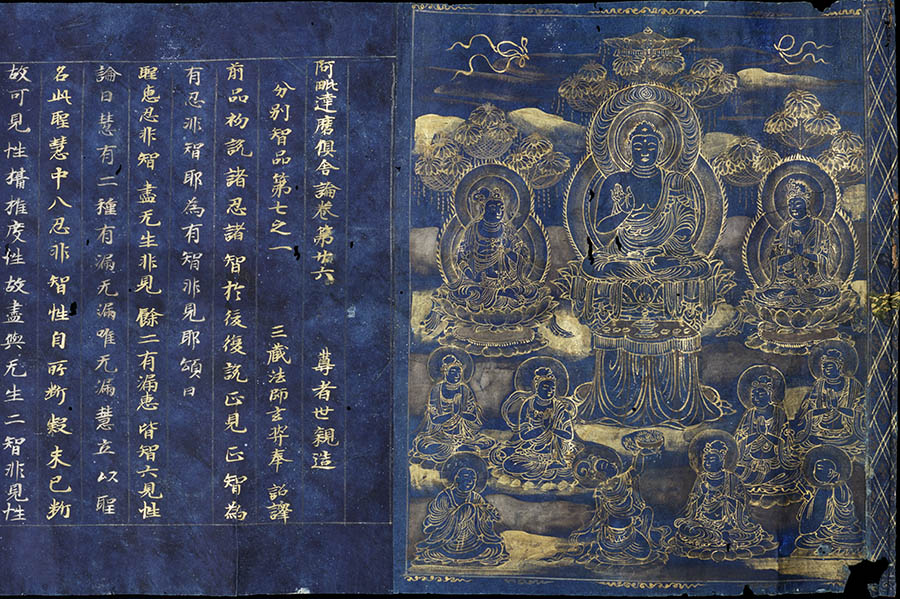 阿毗達磨俱舍論卷第廿六 尊者世親造
分別智品第七之一 三藏法師玄奘奉 詔譯
前品初說諸忍諸智於後復說正見正智為
有忍非智耶為有智非見耶頌曰
聖慧忍非智 盡无生非見 餘二有漏慧 皆智六見性
論曰慧有二種有漏无漏唯无漏慧立以聖
名此聖慧中八忍非智性自所斷疑未已斷
故可見性攝推度性故盡與无生二智非見性